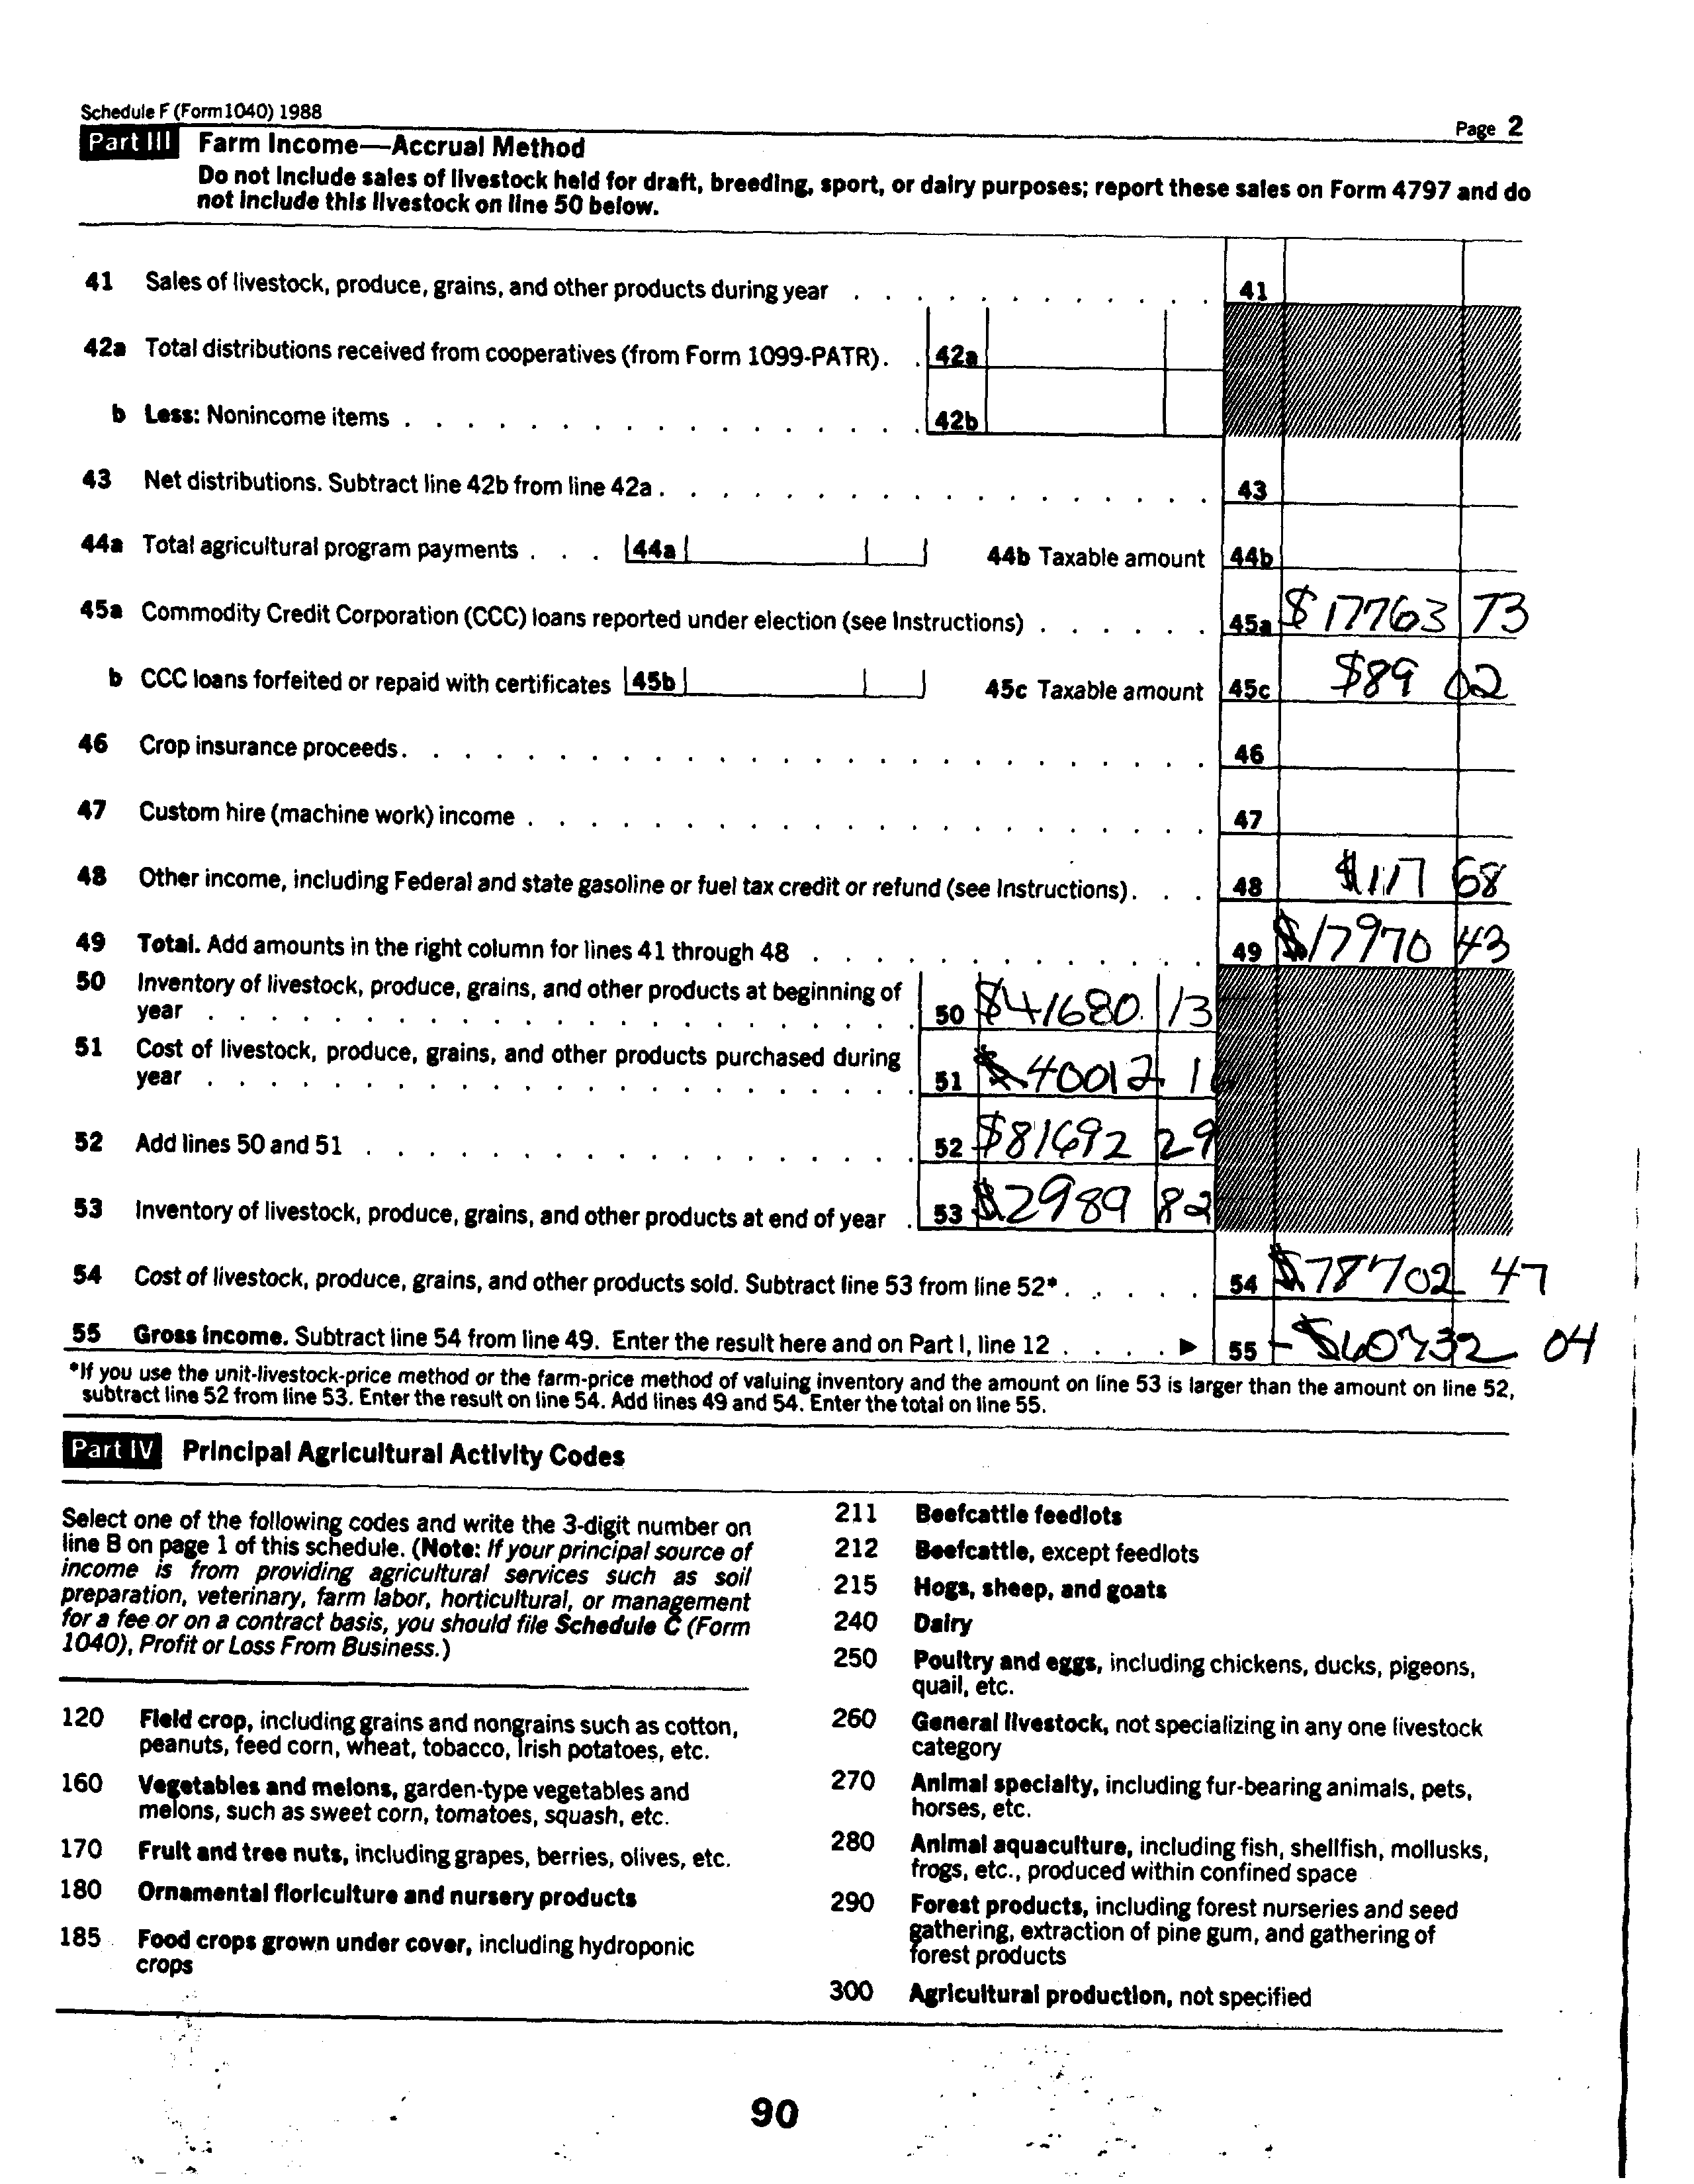 Schedule F (Form 1040) 1988
Page 2
Part III Farm Income—Accrual Method
Do not include sales of livestock held for draft, breeding, sport, or dairy purposes; report these sales on Form 4797 and do
not include this livestock on line 50 below.
41 Sales of livestock, produce, grains, and other products during year . . . . . . . . . . . . 41
42a Total distributions received from cooperatives (from Form 1099-PATR). . 42a
b Less: Nonincome items . . . . . . . . . . . . . . . . . 42b
43 Net distributions. Subtract line 42b from line 42a . . . . . . . . . . . . . . . . . . 43
44a Total agricultural program payments . . . 44a 44b Taxable amount 44b
45a Commodity Credit Corporation (CCC) loans reported under election (see Instructions) . . . . . . 45a $17763 73
b CCC loans forfeited or repaid with certificates 45b 45c Taxable amount 45c $89 02
46 Crop insurance proceeds. . . . . . . . . . . . . . . . . . . . . . . . . . 46
47 Custom hire (machine work) income . . . . . . . . . . . . . . . . . . . . . . 47
48 Other income, including Federal and state gasoline or fuel tax credit or refund (see Instructions). . . 48 $117 68
49 Total. Add amounts in the right column for lines 41 through 48 . . . . . . . . . . . . . 49 $17970 43
50 Inventory of livestock, produce, grains, and other products at beginning of
year . . . . . . . . . . . . . . . . . . . . . . . 50 $41680. 13
51 Cost of livestock, produce, grains, and other products purchased during
year . . . . . . . . . . . . . . . . . . . . . . . 51 $40012 16
52 Add lines 50 and 51 . . . . . . . . . . . . . . . . . . 52 $81692 29
53 Inventory of livestock, produce, grains, and other products at end of year . 53 $2989 82
54 Cost of livestock, produce, grains, and other products sold. Subtract line 53 from line 52* . . . . . 54 $78702 47
55 Gross income. Subtract line 54 from line 49. Enter the result here and on Part I, line 12 . . . . ▶ 55 -$60732 04
*If you use the unit-livestock-price method or the farm-price method of valuing inventory and the amount on line 53 is larger than the amount on line 52,
subtract line 52 from line 53. Enter the result on line 54. Add lines 49 and 54. Enter the total on line 55.
Part IV Principal Agricultural Activity Codes
Select one of the following codes and write the 3-digit number on
line B on page 1 of this schedule. (Note: If your principal source of
income is from providing agricultural services such as soil
preparation, veterinary, farm labor, horticultural, or management
for a fee or on a contract basis, you should file Schedule C (Form
1040), Profit or Loss From Business.)
120 Field crop, including grains and nongrains such as cotton,
peanuts, feed corn, wheat, tobacco, Irish potatoes, etc.
160 Vegetables and melons, garden-type vegetables and
melons, such as sweet corn, tomatoes, squash, etc.
170 Fruit and tree nuts, including grapes, berries, olives, etc.
180 Ornamental floriculture and nursery products
185 Food crops grown under cover, including hydroponic
crops
211 Beefcattle feedlots
212 Beefcattle, except feedlots
215 Hogs, sheep, and goats
240 Dairy
250 Poultry and eggs, including chickens, ducks, pigeons,
quail, etc.
260 General livestock, not specializing in any one livestock
category
270 Animal specialty, including fur-bearing animals, pets,
horses, etc.
280 Animal aquaculture, including fish, shellfish, mollusks,
frogs, etc., produced within confined space
290 Forest products, including forest nurseries and seed
gathering, extraction of pine gum, and gathering of
forest products
300 Agricultural production, not specified
90